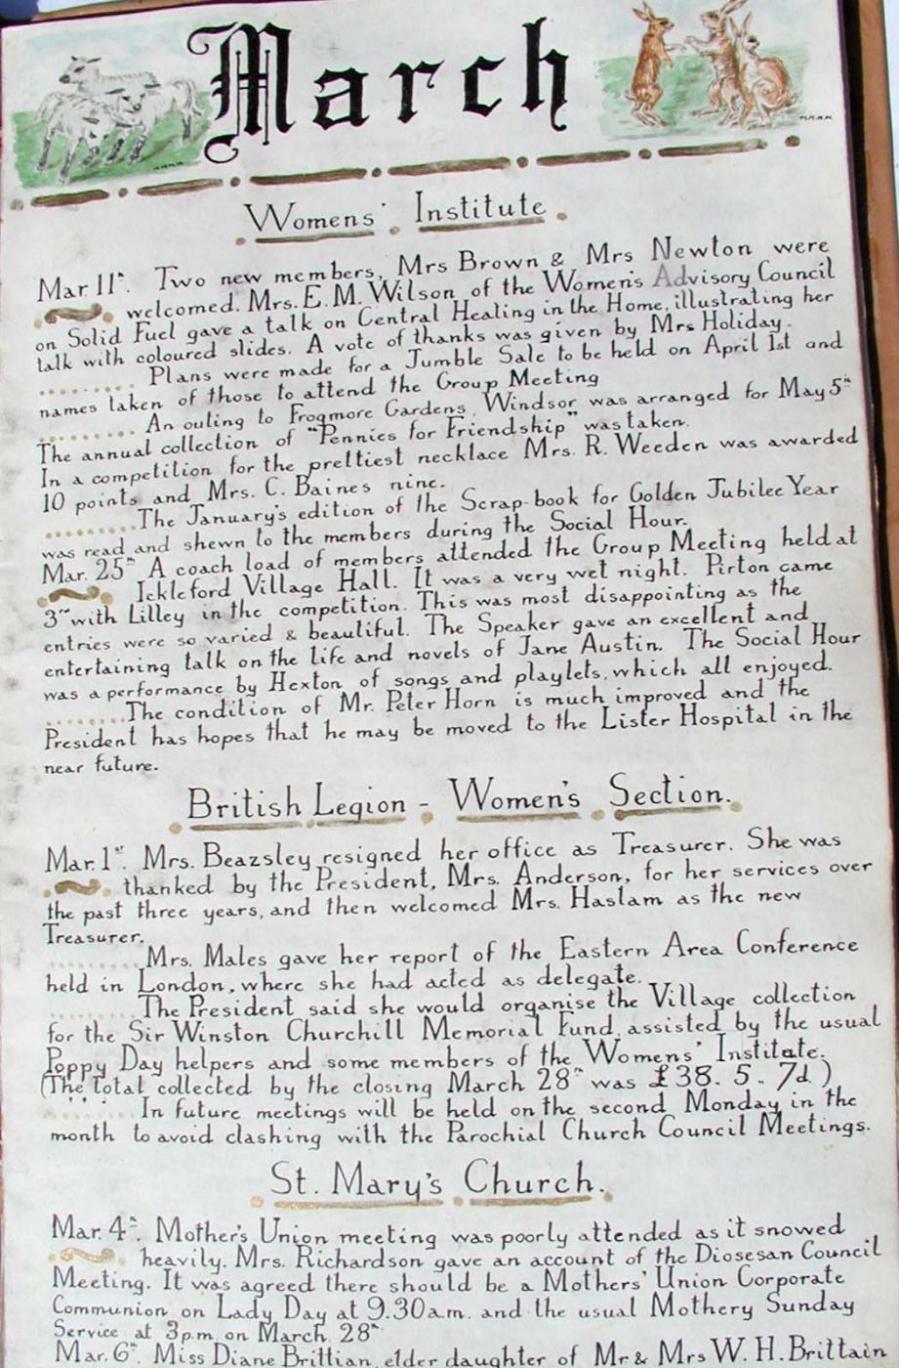 March
Womens' Institute.
Mar. 11th. Two new members, Mrs Brown & Mrs Newton were
welcomed. Mrs. E. M. Wilson of the Women's Advisory Council
on Solid Fuel gave a talk on Central Healing in the Home, illustrating her
talk with coloured slides. A vote of thanks was given by Mrs Holiday.
......... Plans were made for a Jumble Sale to be held on April 1st and
names taken of those to attend the Group Meeting
......... An outing to Frogmore Gardens, Windsor was arranged for May 5th
The annual collection of "Pennies for Friendship" was taken.
In a competition for the prettiest necklace Mrs. R. Weeden was awarded
10 points and Mrs. C. Baines nine.
......... The January's edition of the Scrap-book for Golden Jubilee Year
was read and shewn to the members during the Social Hour.
Mar. 25th A coach load of members attended the Group Meeting held at
Ickleford Village Hall. It was a very wet night. Pirton came
3rd with Lilley in the competition. This was most disappointing as the
entries were so varied & beautiful. The Speaker gave an excellent and
entertaining talk on the life and novels of Jane Austin. The Social Hour
was a performance by Hexton of songs and playlets, which all enjoyed.
........ The condition of Mr. Peter Horn is much improved and the
President has hopes that he may be moved to the Lister Hospital in the
near future.
British Legion - Women's Section.
Mar. 1st. Mrs. Beazsley resigned her office as Treasurer. She was
thanked by the President, Mrs. Anderson, for her services over
the past three years, and then welcomed Mrs. Haslam as the new
Treasurer.
......... Mrs. Males gave her report of the Eastern Area Conference
held in London, where she had acted as delegate.
......... The President said she would organise the Village collection
for the Sir Winston Churchill Memorial Fund, assisted by the usual
Poppy Day helpers and some members of the Womens' Institute.
(The total collected by the closing March 28th was £38. 5. 7d.)
...... In future meetings will be held on the second Monday in the
month to avoid clashing with the Parochial Church Council Meetings.
St. Mary's Church.
Mar. 4th. Mother's Union meeting was poorly attended as it snowed
heavily. Mrs. Richardson gave an account of the Diosesan Council
Meeting. It was agreed there should be a Mothers' Union Corporate
Communion on Lady Day at 9.30a.m. and the usual Mothery Sunday
Service at 3p.m on March 28th
Mar. 6th. Miss Diane Brittian, elder daughter of Mr & Mrs W. H. Brittain